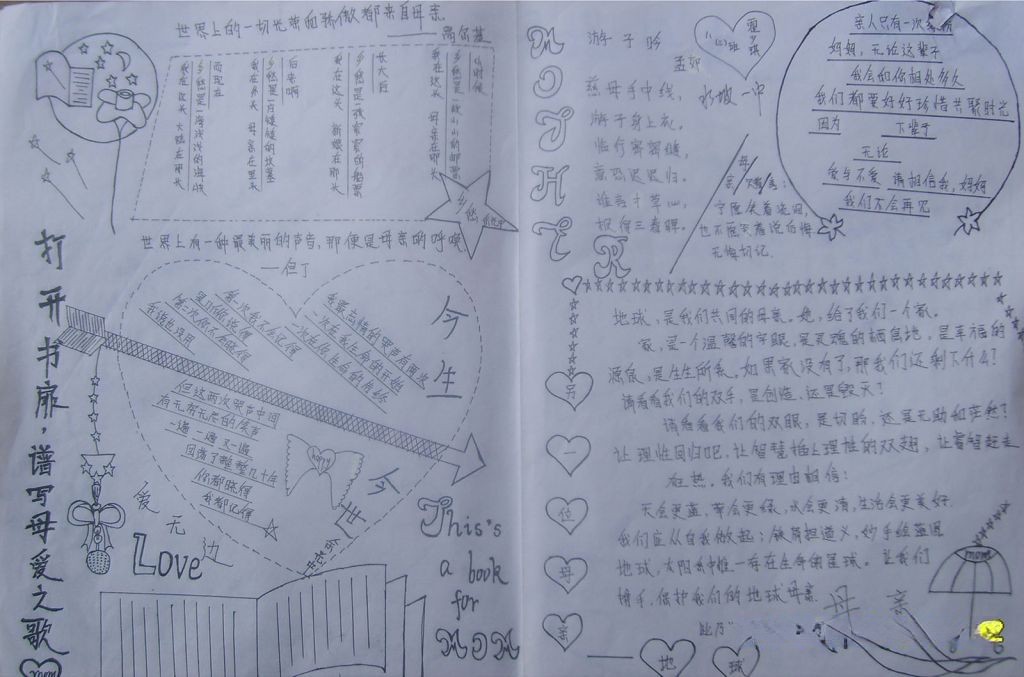 世界上的一切光荣和骄傲都来自母亲
——高尔基
小时候
乡愁是一枚小小的邮票
我在这头 母亲在那头
长大后
乡愁是一张窄窄的船票
我在这头 新娘在那头
后来啊
乡愁是一方矮矮的坟墓
我在外头 母亲在里头
而现在
乡愁是一湾浅浅的海峡
我在这头 大陆在那头
乡愁
余光中
世界上有一种最美丽的声音,那便是母亲的呼唤
——但丁
打开书扉,谱写母爱之歌
mom
今生今世
余光中
我最忘情的哭声有两次
一次在我生命的开始
一次在你生命的告终
第一次我不会记得
是听你说的
第二次你不会晓得
我说也没用
但这两次哭声中间
有无穷无尽的笑声
一遍一遍又一遍
回荡了整整几十年
你都晓得
我都记得
Happy
爱无边
Love
This's
a book
for
MOM
MOTHER
游子吟
孟郊
慈母手中线,
游子身上衣。
临行密密缝,
意恐迟迟归。
谁言寸草心,
报得三春晖。
水坡一中
母亲
宁愿笑着流泪,
也不愿哭着说后悔
无悔切记。
亲人只有一次
妈妈,无论这辈子
我会和你相处多久
我们都要好好珍惜共聚时光
因为
下辈子
无论
爱与不爱 请相信我,妈妈
我们不会再见
另一位母亲
——地球
地球,是我们共同的母亲。她,给了我们一个家。
家,是一个温馨的字眼,是灵魂的栖息地,是幸福的
源泉,是生生所系。如果家没有了,那我们还剩下什么?
请看看我们的双手,是创造,还是毁灭?
请看看我们的双眼,是切盼,还是无助和茫然?
让理性回归吧,让智慧插上理性的双翅,让睿智赶走
狂热。我们有理由相信:
天会更蓝,草会更绿,水会更清,生活会更美好.
我们应从自我做起;铁肩担道义,妙手绘蓝图
地球,太阳系中惟一存在生命的星球。让我们
携手,保护我们的地球母亲
母亲
mom